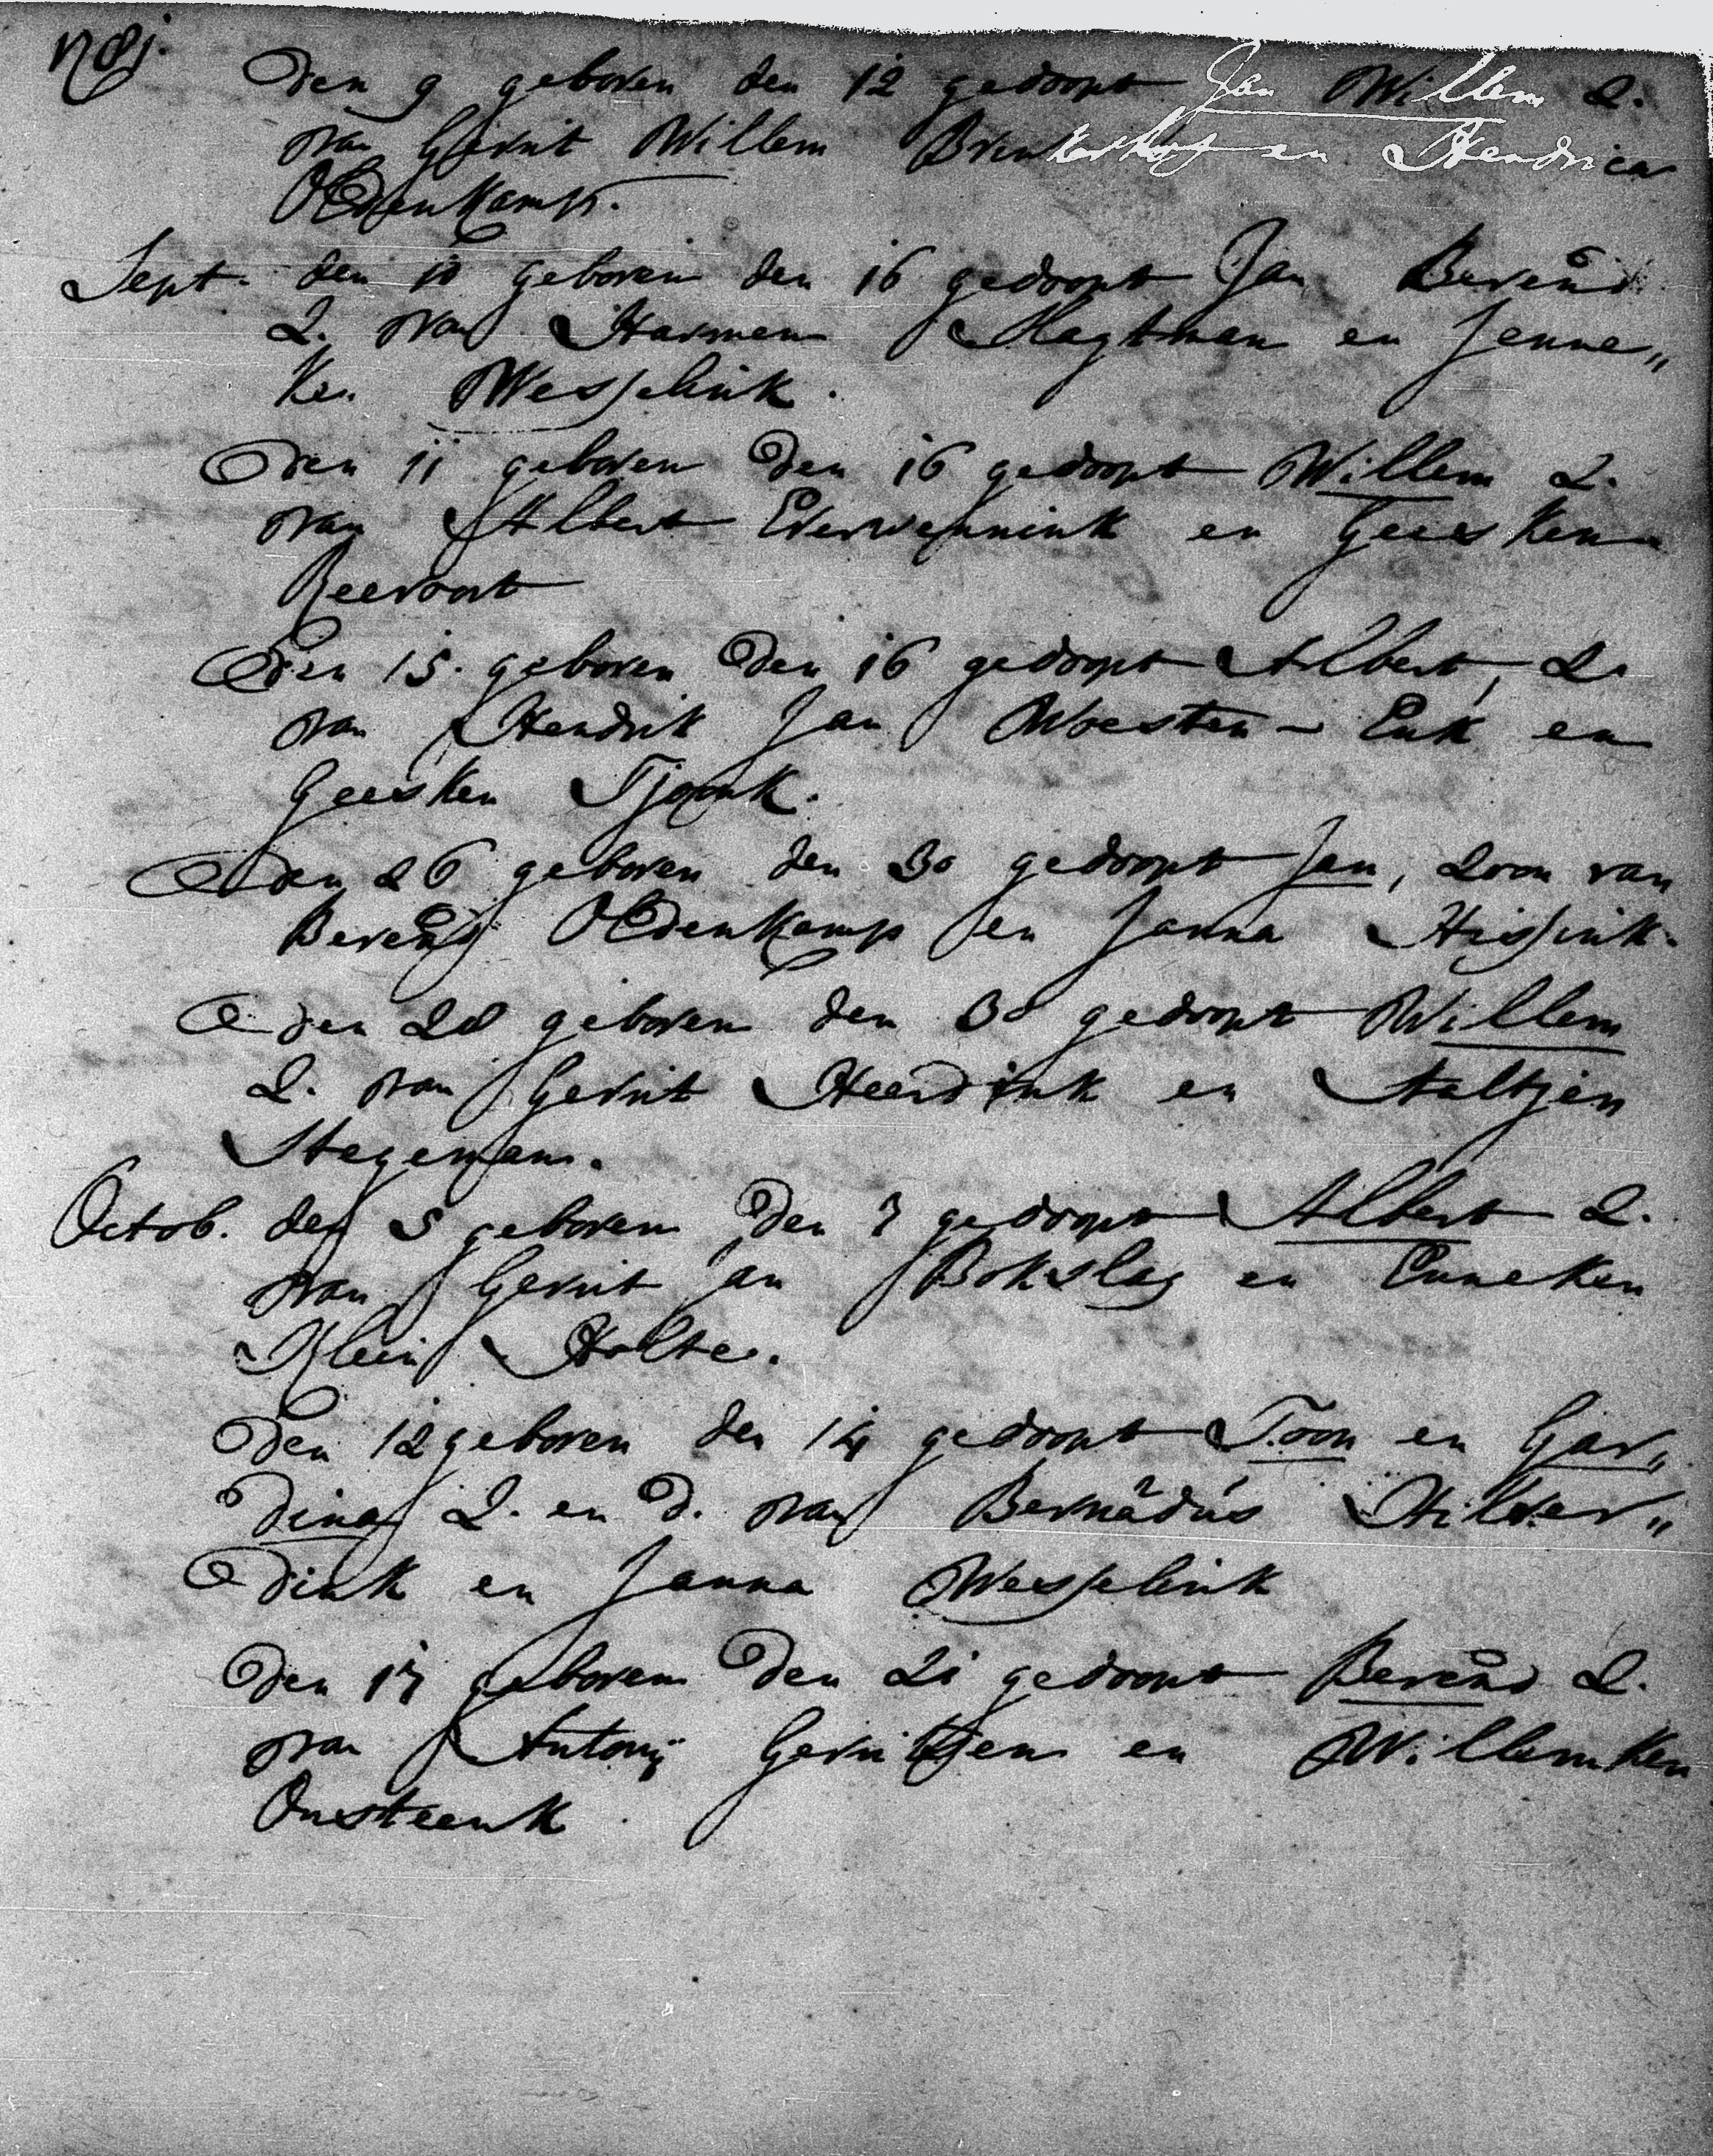 1781.
Den 9 geboren den 12 gedoopt Jan Willem Z.
van Gerrit Willem Brinkerhof en Hendrica
Oldenkamp.
Sept. den 10 geboren den 16 gedoopt Jan Berend
Z. van Harmen Slagtman en Jenne„
ken Wesselink.
Den 11 geboren Den 16 gedoopt Willem Z.
van Albert Everwennink en Geesken
Reervort
Den 15. geboren Den 16 gedoopt Albert, Z.
van Hendrik Jan Woesten-Enk en
Geesken Tjoonk.
Den 26 geboren den 30 gedoopt Jan, Zoon van
Berend Oldenkamp en Janna Hissink.
Den 28 geboren den 30 gedoopt Willem
Z. van Gerrit Heerdink en Aaltjen
Stegeman.
Octob. den 5 geboren Den 7 gedoopt Albert Z.
van Gerrit Jan Bokslag en Enneken
Klein Holte.
Den 12 geboren den 14 gedoopt Toon en Gar„
dina Z. en D. van Bernādus Hilver„
Dink en Janna Wesselink
Den 17 geboren Den 21 gedoopt Berend Z.
van Antonij Gerritsen en Willemken
Onsteenk